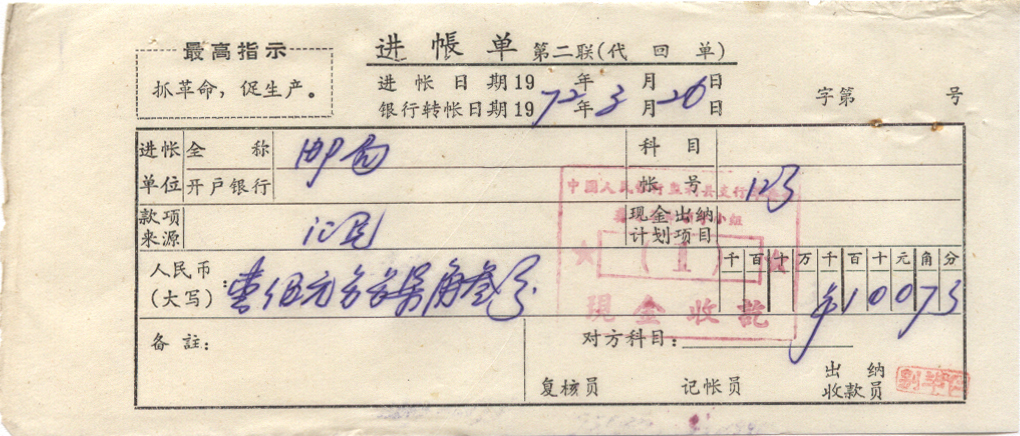 最高指示
抓革命，促生产。
进 帳 单 第二联(代 回 单)
进 帐 日 期 19 年 月 日
银行转帐日期 1972年3月26日
字第 号
进帐 全 称 邮局
科 目
单位 开户银行
帐 号 123
款项来源 汇兑
现金出纳计划项目
中國人民银行监利县支行
小组
★ (1)
现金收訖
千百十万千百十元角分
人民币(大写):
¥100 73
备 註:
对方科目:
复核员 记帐员 出纳收款员